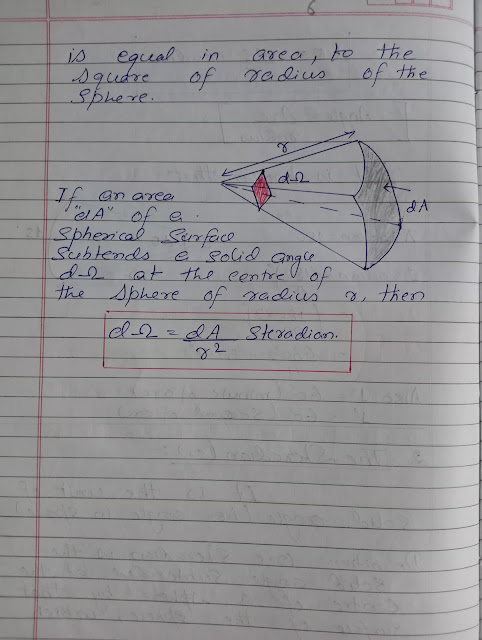 6
is equal in area, to the
square of radius of the
sphere.
r
dΩ
dA
If an area
"dA" of a
spherical surface
subtends a solid angle
dΩ at the centre of
the sphere of radius r, then
dΩ = dA/r² Steradian.